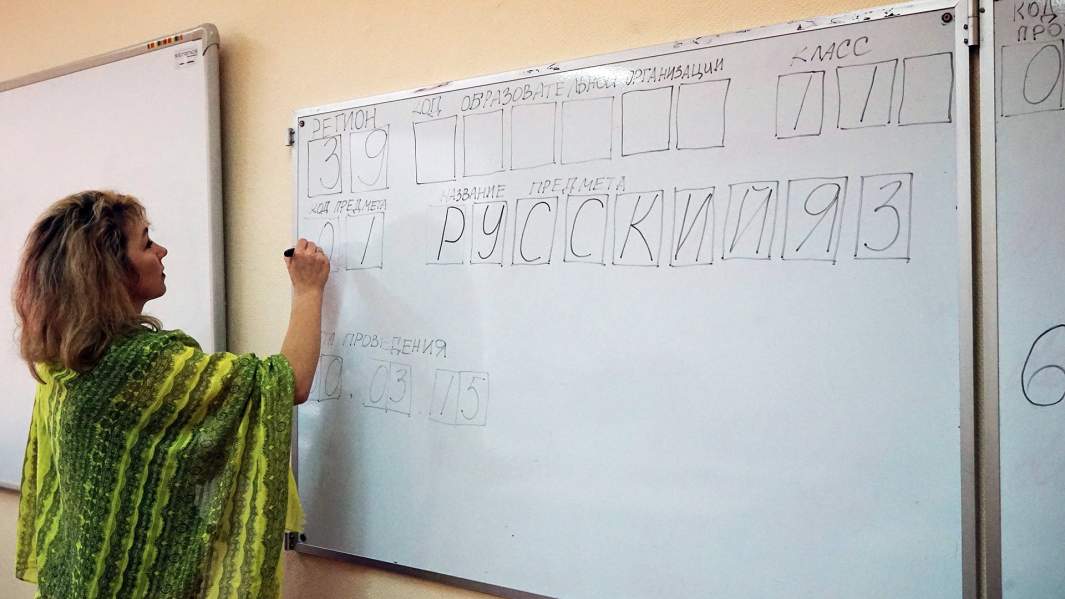 РЕГИОН
39
КОД ОБРАЗОВАТЕЛЬНОЙ ОРГАНИЗАЦИИ
КЛАСС
11
КОД ПРЕДМЕТА
01
НАЗВАНИЕ ПРЕДМЕТА
РУССКИЙ ЯЗ
ПРОВЕДЕНИЯ
03.15
КОД
ПРО
0
6